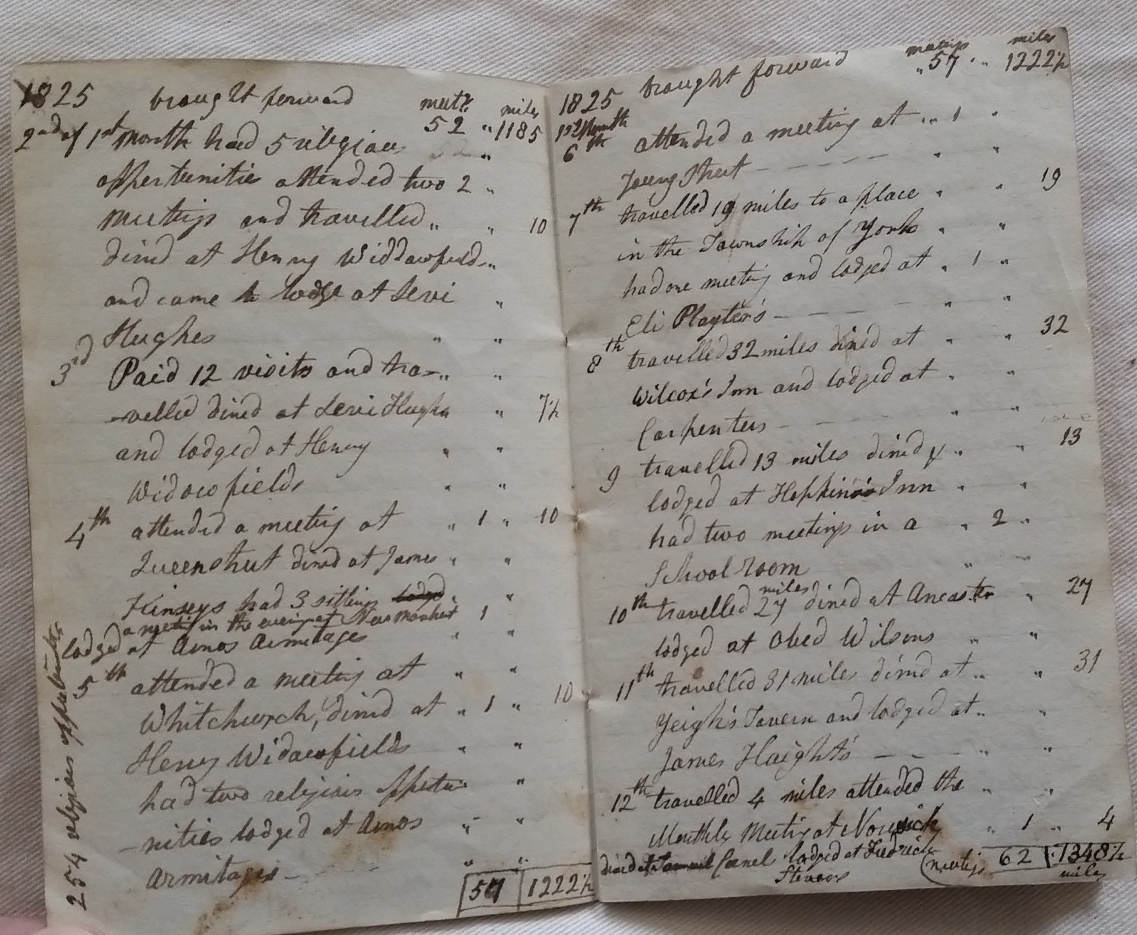 1825 brought forward meetgs miles
52 " 1185
2nd of 1st month had 5 religious
opportunities attended two 2 "
meetings and travelled " " 10
dined at Henry Widdowfields "
and came to lodge at Levi "
Hughes " "
3rd Paid 12 visits and tra- " "
-velled dined at Levi Hughs " 7½
and lodged at Henry " "
Widowfields " "
4th attended a meeting at " 1 " 10
Queenstreet dined at James " "
Kinseys had 3 sittings lodgd "
a meetg in the evening at Newmarket 1
lodged at Amos Armitages " "
5th attended a meeting at " "
Whitchurch, dined at " 1 " 10
Henry Widowfields " "
had two religious opportu- "
-nities lodged at Amos " "
Armitages - " "
57 1222½
254 religious opportunities
1825 brought forward meetings miles
"57 " " 1222½
1st Month
6th attended a meeting at " " 1 "
Young Street - - - - " "
7th travelled 19 miles to a place " " 19
in the Township of York " "
had one meeting and lodged at " 1 "
Eli Playter's - - - "
8th travelled 32 miles dined at " " 32
Wilcox's Inn and lodged at " "
Carpenters - - - " "
9 travelled 13 miles dined & " " 13
lodged at Hopkins's Inn " "
had two meetings in a " 2 "
School room "
10th travelled 27 miles dined at Ancaster " 27
lodged at Obed Wilsons " "
11th travelled 31 miles dined at " " 31
Yeigh's Tavern and lodged at " "
James Haight's - - - " "
12th travelled 4 miles attended the " "
Monthly Meeting at Norwich " 1 " 4
dined at Samuel Cornel lodged at Fredrick
Stevens
meetings 62 1348½
miles